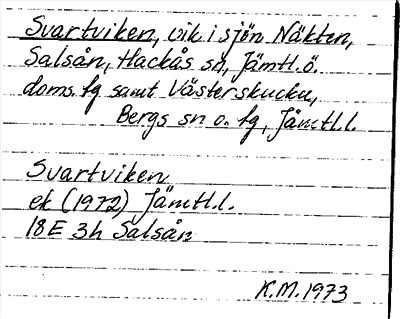 Svartviken, vik i sjön Näkten,
Salsån, Hackås sn, Jämtl.ö.
doms. fg samt Västerskucku,
Bergs sn o. fg, Jämtl.l.
Svartviken
ek (1972) Jämtl.l.
18E 3h Salsån
K.M. 1973